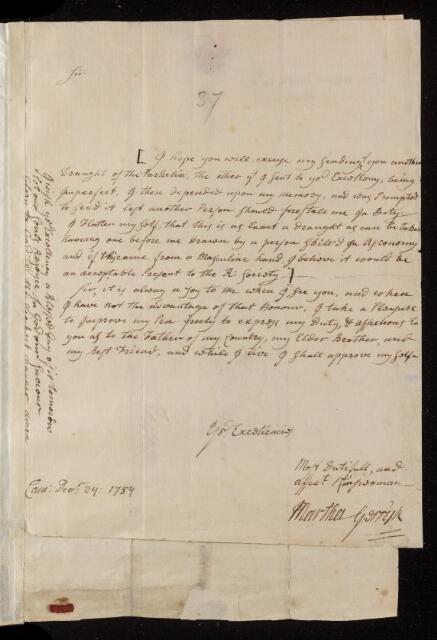 Sir
37
[ I hope you will excuse my Sending you another
Draught of the Parhelia, the other if I Sent to yor Excellency, being
Imperfect, I there depended upon my memory, and was Prompted
to Send it lest another Person should forestall me In Duty.
I Flatter my Self, that this is as Exact a Draught as can be taken
haveing one before me Drawn by a person Skill'd In Astronomy
and if this came from a Masculine hand, I believe it would be
an acceptable Present to the R: Society. ]
Sir, it is alway a Joy to me when I See you, and when
I have not the advantage of that Honour, I take a Pleasure
to Improve my Pen freely to express my Duty, & affections to
you as to the Father of my Country, my Elder Brother, and
my Best Friend, and while I live I shall approve my Self
Yor Excellencies
Most Dutifull, and
affect Kinswoman
Martha Gerrish
Cam: Decr 24: 1734
I wish yor Excellency a Blessed
tomorrow
Let our Souls Rejoyce In God our Saviour